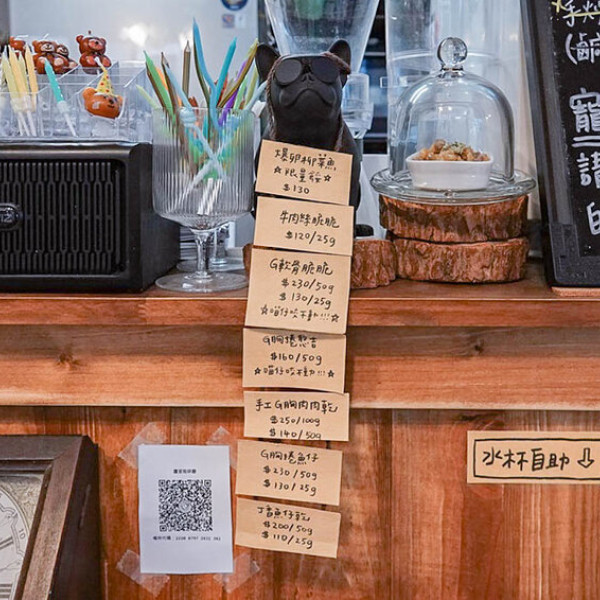 爆卵柳葉魚
☆限量餐☆
$130
牛肉絲脆脆
$120/25g
G軟骨脆脆
$230/50g
$130/25g
☆喵仔咬不動!!!☆
G胸捲地瓜
$160/50g
☆喵仔咬不動!!!☆
手工G胸肉肉乾
$250/100g
$140/50g
G胸捲魚仔
$230/50g
$130/25g
丁香魚仔乾
$200/50g
$110/25g
水杯自助⇩
(鹹
寵
請